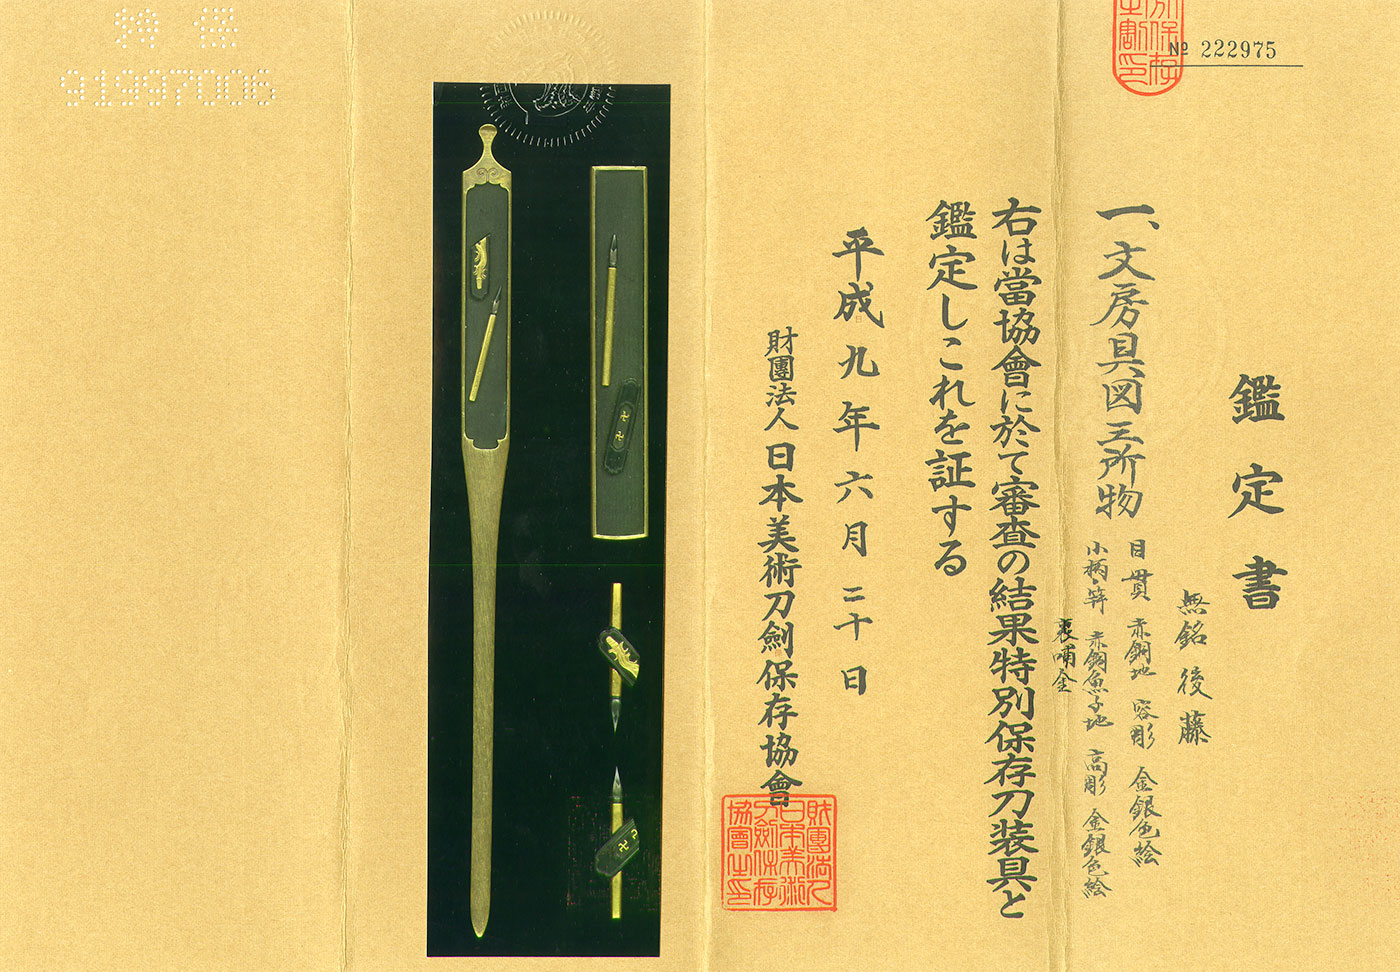 № 222975
鑑定書
一、文房具図三所物
無銘 後藤
目貫 赤銅地 容彫 金銀色絵
小柄・笄 赤銅魚子地 高彫 金銀色絵
裏哺金
右は當協會に於て審査の結果特別保存刀装具と
鑑定しこれを証する
平成九年六月二十日
財團法人 日本美術刀劍保存協會
財團法人
日本美術
刀劍保存
協會之印
91997006